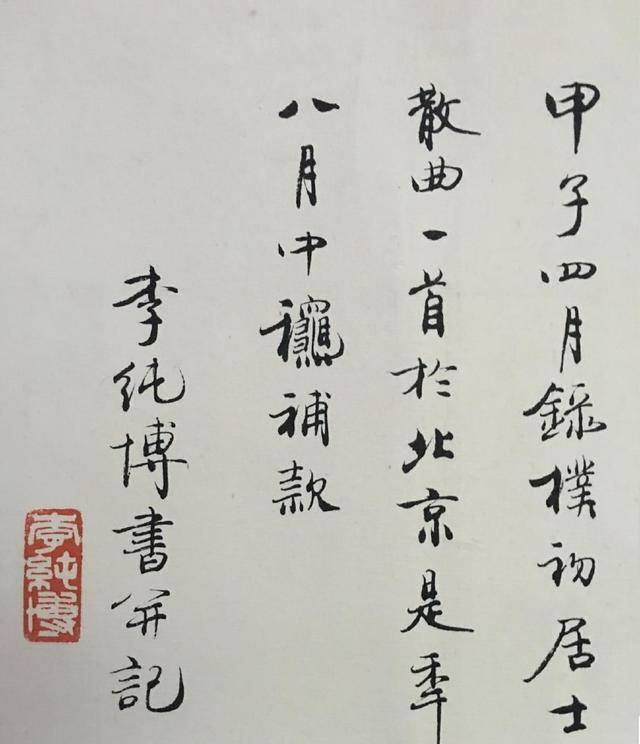 甲子四月錄樸初居士
散曲一首於北京是年
八月中龝補款
李純博書并記
李純博